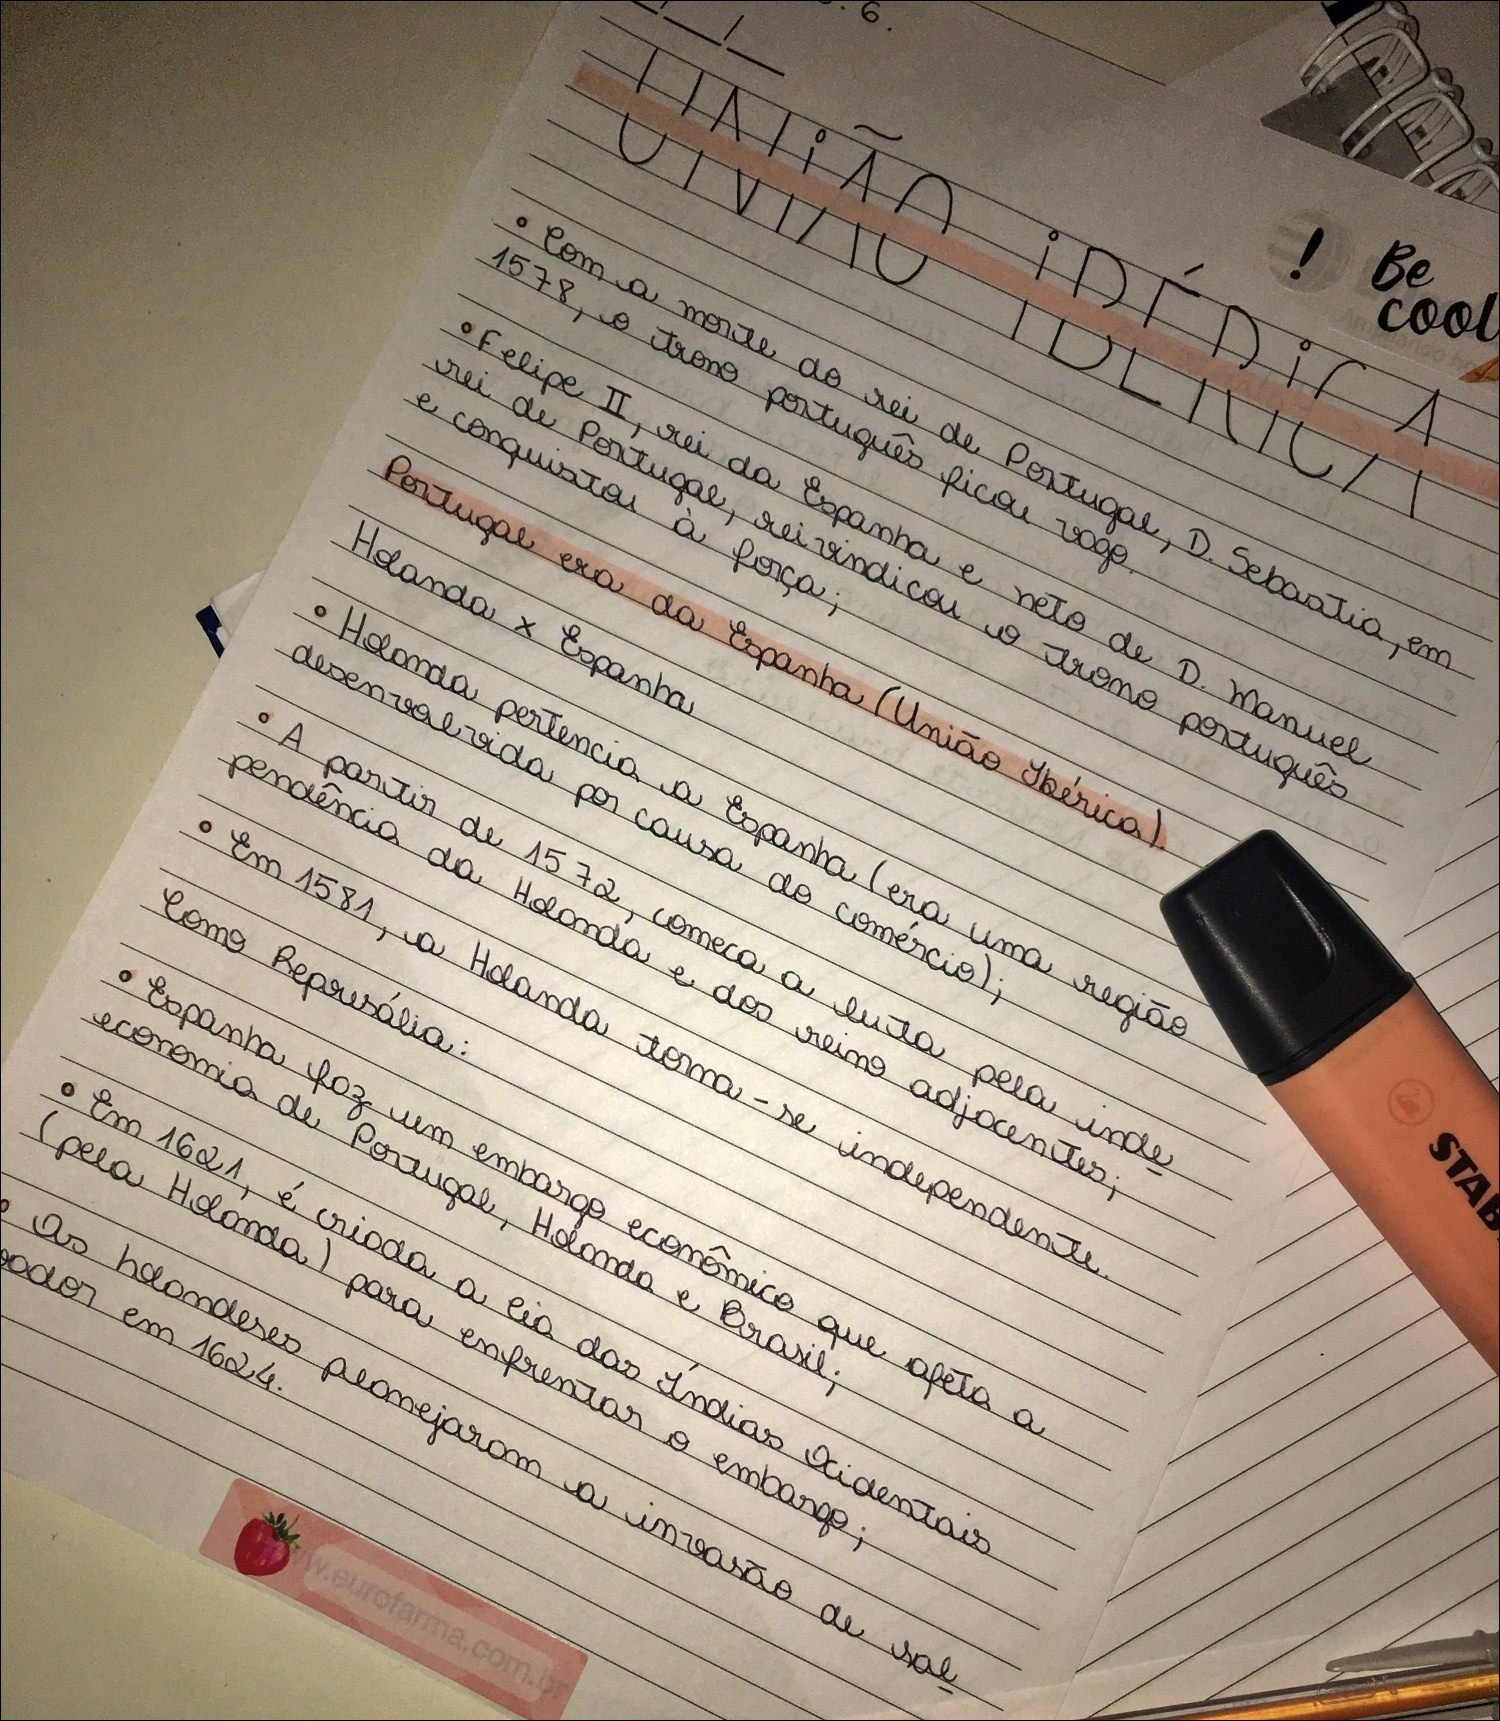 6.
UNIÃO IBÉRICA
! Be
cool
• Com a morte do rei de Portugal, D. Sebastia, em
1578, o trono português ficou vago.
• Felipe II, rei da Espanha e neto de D. Manuel
rei de Portugal, reivindicou o trono português
e conquistou à força;
Portugal era da Espanha (União Ibérica)
Holanda x Espanha
• Holanda pertencia a Espanha (era uma região
desenvolvida por causa do comércio);
• A partir de 1572, começa a luta pela inde
pendência da Holanda e dos reino adjacentes;
• Em 1581, a Holanda torna-se independente.
Como Represália:
• Espanha faz um embargo econômico que afeta a
economia de Portugal, Holanda e Brasil;
• Em 1621, é criada a Cia das Índias Ocidentais
(pela Holanda) para enfrentar o embargo;
• Os holandeses planejaram a invasão de sal
vador em 1624.
STAB
www.eurofarma.com.br